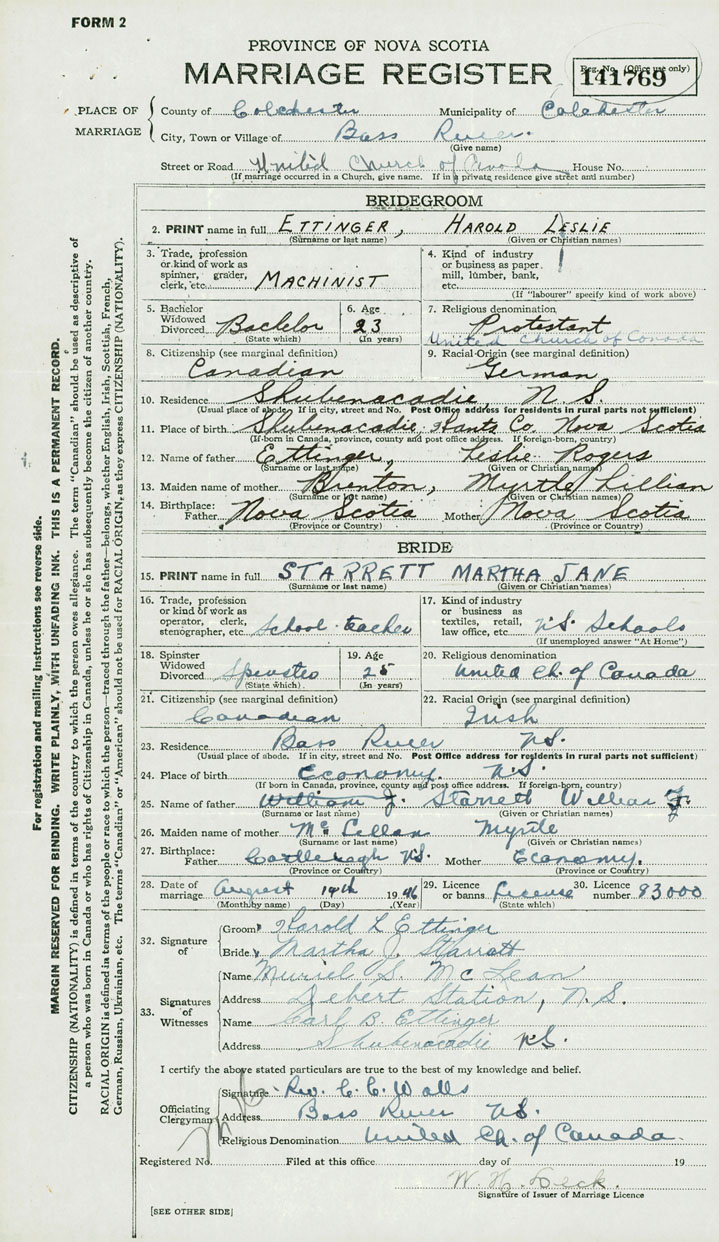 FORM 2
PROVINCE OF NOVA SCOTIA
MARRIAGE REGISTER
Reg. No. (Office use only)
141769
PLACE OF MARRIAGE
County of Colchester Municipality of Colchester
City, Town or Village of Bass River.
(Give name)
Street or Road United Church of Canada House No.
(If marriage occurred in a Church, give name. If in a private residence give street and number)
BRIDEGROOM
2. PRINT name in full ETTINGER, HAROLD LESLIE
(Surname or last name) (Given or Christian names)
3. Trade, profession or kind of work as spinner, grader, clerk, etc. MACHINIST
4. Kind of industry or business as paper mill, lumber, bank, etc.
(If "labourer" specify kind of work above)
5. Bachelor Widowed Divorced Bachelor
(State which)
6. Age 23
(In years)
7. Religious denomination Protestant
United Church of Canada
8. Citizenship (see marginal definition)
Canadian
9. Racial Origin (see marginal definition)
German
10. Residence Shubenacadie, N. S.
(Usual place of abode. If in city, street and No. Post Office address for residents in rural parts not sufficient)
11. Place of birth Shubenacadie, Hants Co. Nova Scotia
(If born in Canada, province, county and post office address. If foreign-born, country)
12. Name of father Ettinger, Leslie Rogers
(Surname or last name) (Given or Christian names)
13. Maiden name of mother Brenton, Myrtle Lillian
(Surname or last name) (Given or Christian names)
14. Birthplace: Father Nova Scotia Mother Nova Scotia
(Province or Country) (Province or Country)
BRIDE
15. PRINT name in full STARRETT MARTHA JANE
(Surname or last name) (Given or Christian names)
16. Trade, profession or kind of work as operator, clerk, stenographer, etc. School-teacher
17. Kind of industry or business as textiles, retail, law office, etc. N.S. Schools
(If unemployed answer "At Home")
18. Spinster Widowed Divorced Spinster
(State which)
19. Age 25
(In years)
20. Religious denomination
United Ch. of Canada
21. Citizenship (see marginal definition)
Canadian
22. Racial Origin (see marginal definition)
Irish
23. Residence Bass River N.S.
(Usual place of abode. If in city, street and No. Post Office address for residents in rural parts not sufficient)
24. Place of birth Economy. N.S.
(If born in Canada, province, county and post office address. If foreign-born, country)
25. Name of father William J. Starrett William J.
(Surname or last name) (Given or Christian names)
26. Maiden name of mother McLellan Myrtle
(Surname or last name) (Given or Christian names)
27. Birthplace: Father Castlereagh N.S. Mother Economy.
(Province or Country) (Province or Country)
28. Date of marriage August 14th 1946
(Month by name) (Day) (Year)
29. Licence or banns License
(State which)
30. Licence number 93000
32. Signature of
Groom Harold L Ettinger
Bride Martha J. Starratt
33. Signatures of Witnesses
Name Muriel S. McLean
Address Debert Station, N.S.
Name Carl B. Ettinger
Address Shubenacadie N.S.
I certify the above stated particulars are true to the best of my knowledge and belief.
Officiating Clergyman
Signature Rev. C. C. Walls
Address Bass River N.S.
Religious Denomination United Ch. of Canada.
Registered No. Filed at this office day of 19
W. H. Peck.
Signature of Issuer of Marriage Licence
[SEE OTHER SIDE]
For registration and mailing instructions see reverse side.
MARGIN RESERVED FOR BINDING. WRITE PLAINLY, WITH UNFADING INK. THIS IS A PERMANENT RECORD.
CITIZENSHIP (NATIONALITY) is defined in terms of the country to which the person owes allegiance. The term "Canadian" should be used as descriptive of
a person who was born in Canada or who has rights of Citizenship in Canada, unless he or she has subsequently become the citizen of another country.
RACIAL ORIGIN is defined in terms of the people or race to which the person—traced through the father—belongs, whether English, Irish, Scottish, French,
German, Russian, Ukrainian, etc. The terms "Canadian" or "American" should not be used for RACIAL ORIGIN, as they express CITIZENSHIP (NATIONALITY).